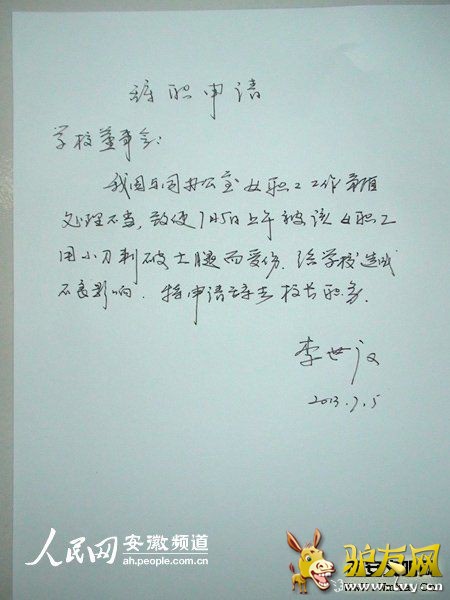 辞职申请
学校董事会:
我因与同办公室女职工工作矛盾
处理不当,致使7月5日上午被该女职工
用小刀刺破大腿而受伤.给学校造成
不良影响.特申请辞去校长职务.
李世
2013.7.5
人民网 安徽频道
ah.people.com.cn
驴友网
www.